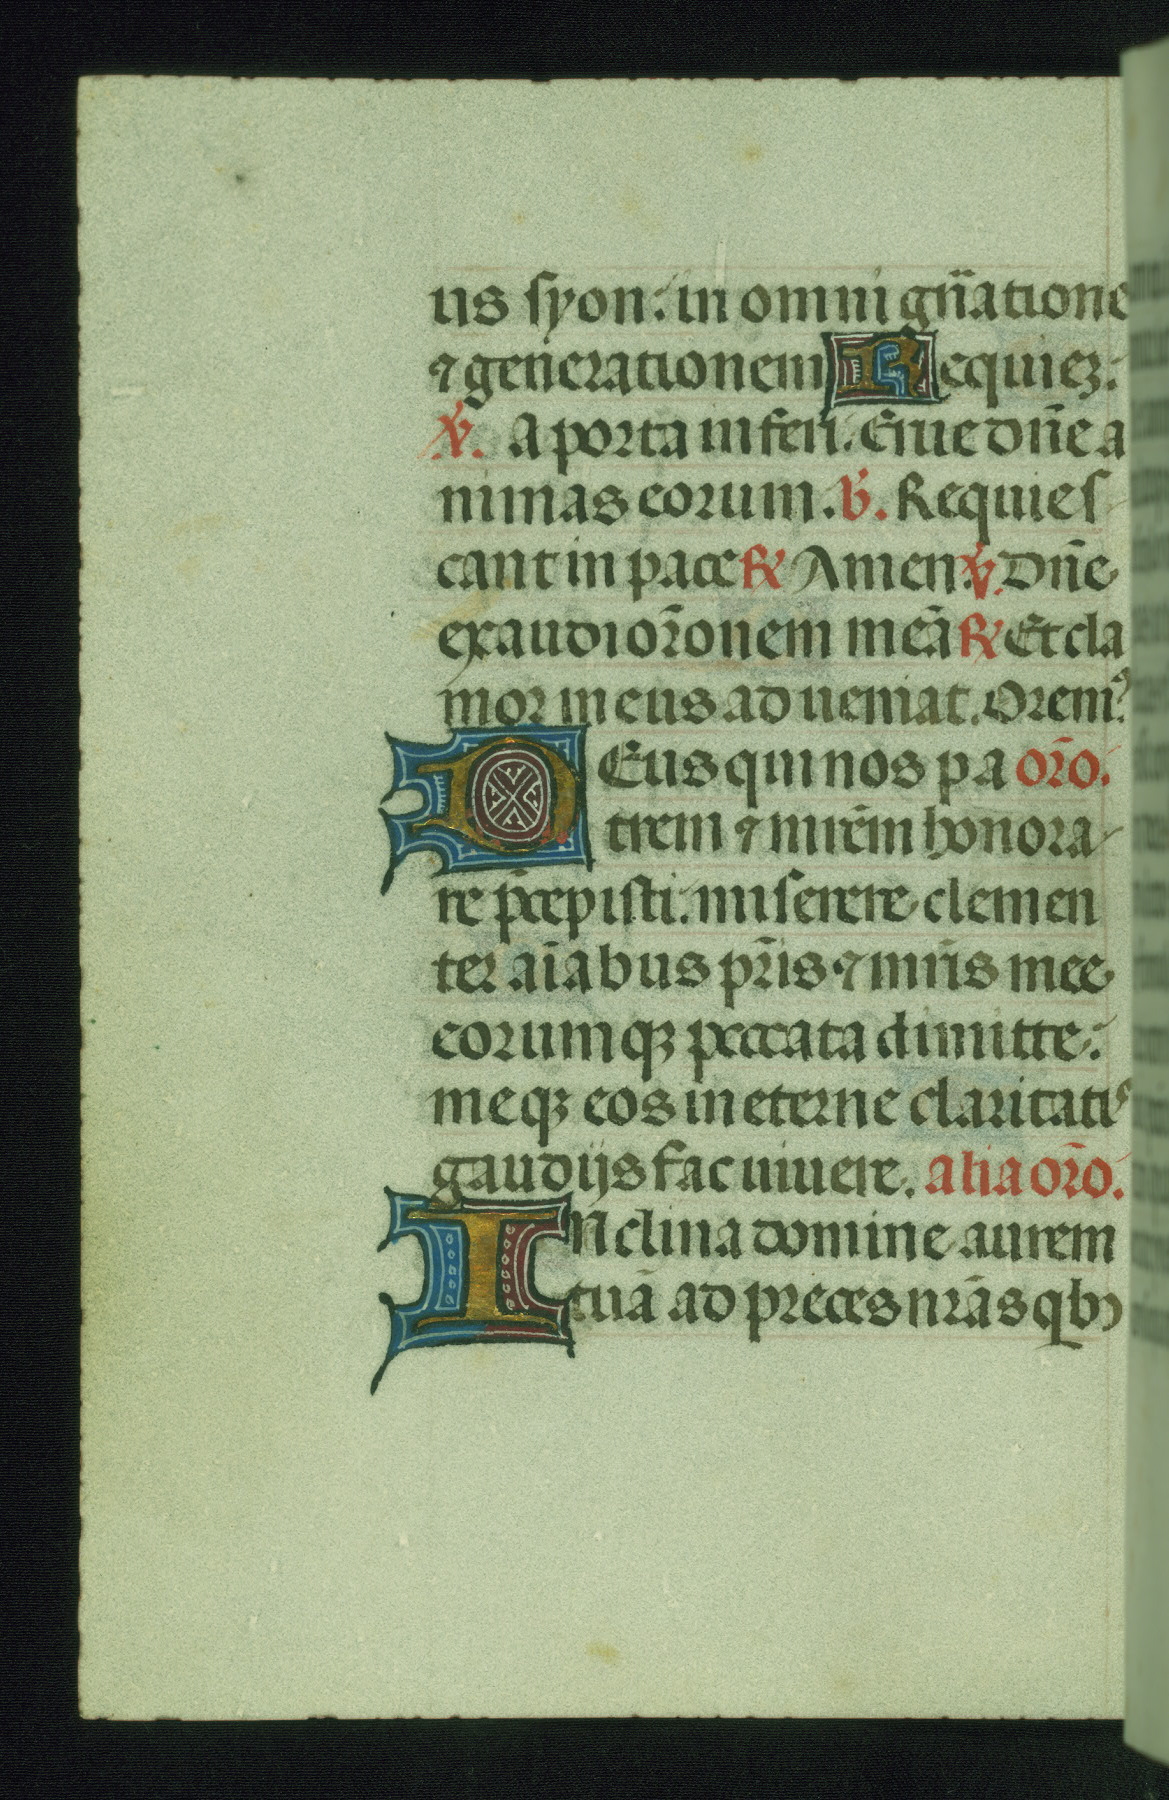 us syon: in omni gn̄atione
⁊ generationem Requieꝫ:
℣. A porta inferi. Erue dn̄e a
nimas eorum. ℣. Requies
cant in pace ℟ Amen. ℣. Dn̄e
exaudi or̄onem meā ℟ Et cla
mor meus ad ueniat. Orem⁹
Deus qui nos pa or̄o.
trem ⁊ mr̄em honora
re p̄cepisti. miserere clemen
ter aīabus pr̄is ⁊ mr̄is mee
eorumqꝫ peccata dimitte:
meqꝫ eos in eterne claritatis
gaudijs fac uiuere. alia or̄o.
INclina domine aurem
tuā ad preces nr̄as qbꝰ